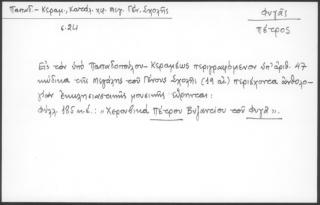 Παπαδ.-Κεραμ., Κατάλ. χφ. Μεγ. Γέν. Σχολῆς
σ. 24
Φυγᾶς
Πέτρος
Εἰς τὸν ὑπὸ Παπαδοπούλου-Κεραμέως περιγραφόμενον ὑπ' ἀριθ. 47
κώδικα τῆς Μεγάλης τοῦ Γένους Σχολῆς (19 αἰ.) περιέχοντα ἀνθολο-
γίαν ἐκκλησιαστικῆς μουσικῆς εὕρηται:
Φύλλ. 185 κ.ἑ.: "Χερουβικὰ Πέτρου Βυζαντίου τοῦ Φυγᾶ".